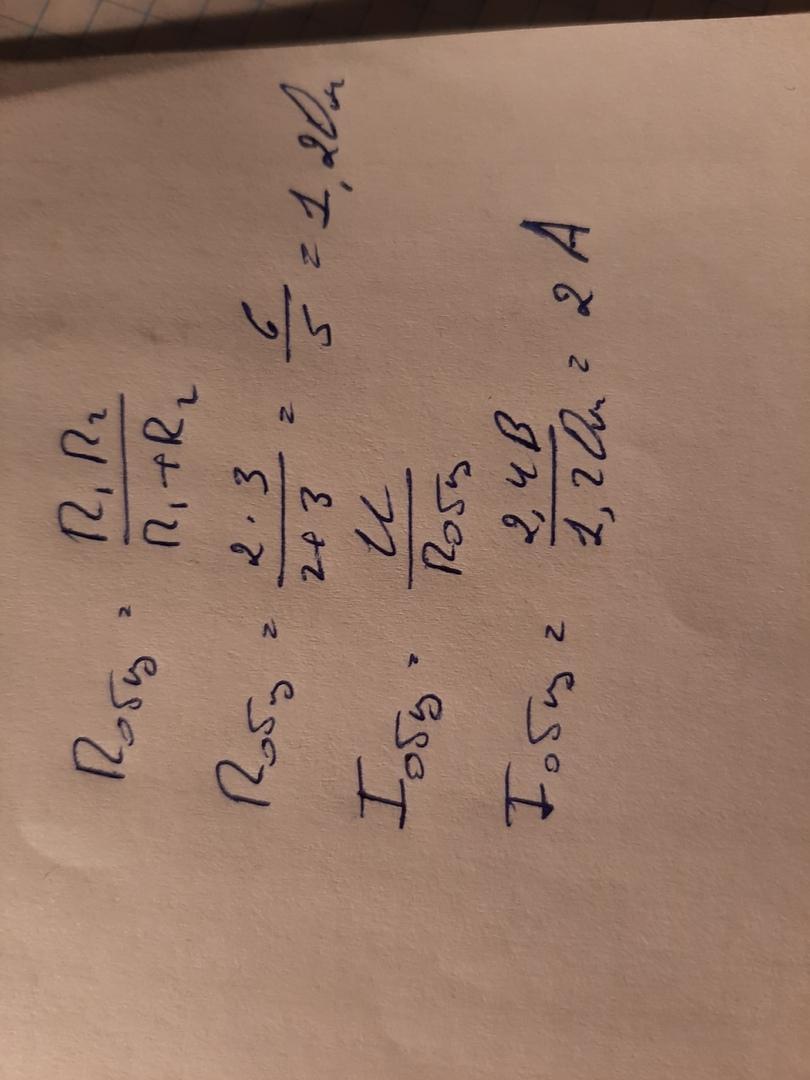 Rобщ = R₁ R₂ / R₁ + R₂
Rобщ = 2 · 3 / 2 + 3 = 6 / 5 = 1,2 Ом
Iобщ = U / Rобщ
Iобщ = 2,4 В / 1,2 Ом = 2 А